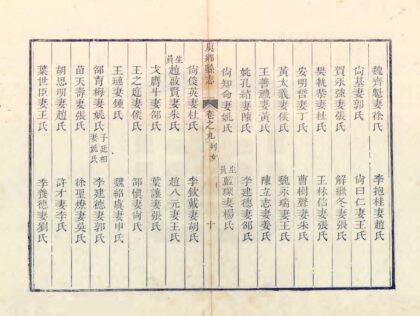 魏齊魁妻徐氏 李抱桂妻趙氏
尙基妻郭氏 尙曰仁妻王氏
賀永強妻張氏 解繼冬妻張氏
樊執恭妻杜氏 王林信妻張氏
安明哲妻丁氏 曹樹聲妻朱氏
黃太義妻侯氏 魏永瑞妻王氏
王善機妻黃氏 陳立志妻姜氏
姚孔結妻陳氏 李建德妻邵氏
尙知命妻姚氏 生員藍璞妻楊氏
虞鄉縣志 卷之九列女 十
尙俊英妻杜氏 李欽戴妻胡氏
生員趙
妻朱氏 趙八元妻王氏
戈膺斗妻邵氏 葉謙妻張氏
王之庭妻侯氏 邵愼妻尙氏
王璉妻鍾氏 魏紹虞妻申氏
邵育梅妻姚氏子廷相妻姚氏 李建德妻郭氏
苗天壽妻張氏 徐聖燎妻吳氏
胡思明妻趙氏 許才妻李氏
葉世臣妻王氏 李養德妻劉氏